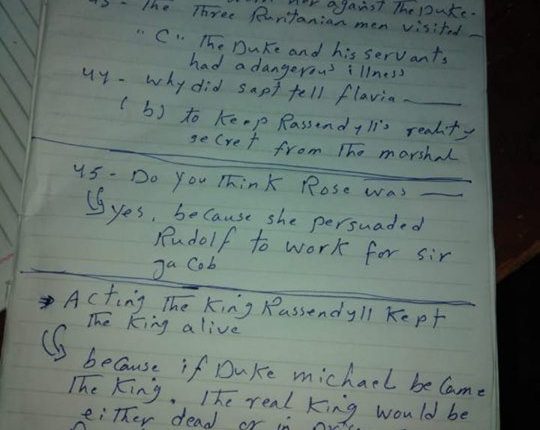 her against The Duke.
43 - The Three Ruritanian men visited —
"C" The Duke and his servants
had a dangerous illness
44 - why did sapt tell flavia ——
(b) to keep Rassendyll's reality
secret from The marshal
45 - Do you Think Rose was ——
yes, because she persuaded
Rudolf to work for sir
Jacob
Acting The King Rassendyll Kept
The King alive
because if Duke michael became
The King. The real King would be
either dead or in